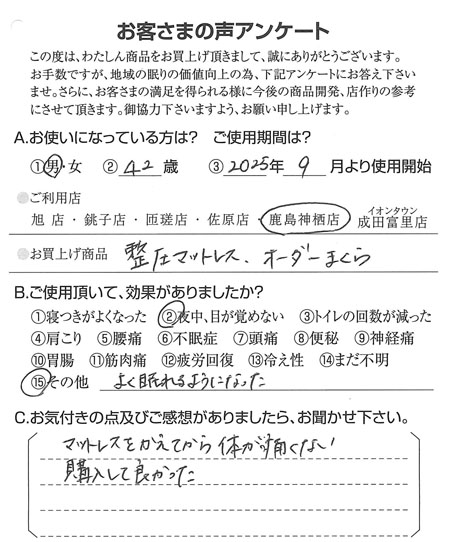 お客さまの声アンケート
この度は、わたしん商品をお買上げ頂きまして、誠にありがとうございます。
お手数ですが、地域の眠りの価値向上の為、下記アンケートにお答え下さい
ませ。さらに、お客さまの満足を得られる様に今後の商品開発、店作りの参考
にさせて頂きます。御協力下さいますよう、お願い申し上げます。
A.お使いになっている方は? ご使用期間は?
①男・女 ②42歳 ③2025年9月より使用開始
●ご利用店
旭店・銚子店・匝瑳店・佐原店・鹿島神栖店・イオンタウン成田富里店
●お買上げ商品 整圧マットレス、オーダーまくら
B.ご使用頂いて、効果がありましたか?
①寝つきがよくなった ②夜中、目が覚めない ③トイレの回数が減った
④肩こり ⑤腰痛 ⑥不眠症 ⑦頭痛 ⑧便秘 ⑨神経痛
⑩胃腸 ⑪筋肉痛 ⑫疲労回復 ⑬冷え性 ⑭まだ不明
⑮その他 よく眠れるようになった
C.お気付きの点及びご感想がありましたら、お聞かせ下さい。
マットレスをかえてから体が痛くない
購入して良かった